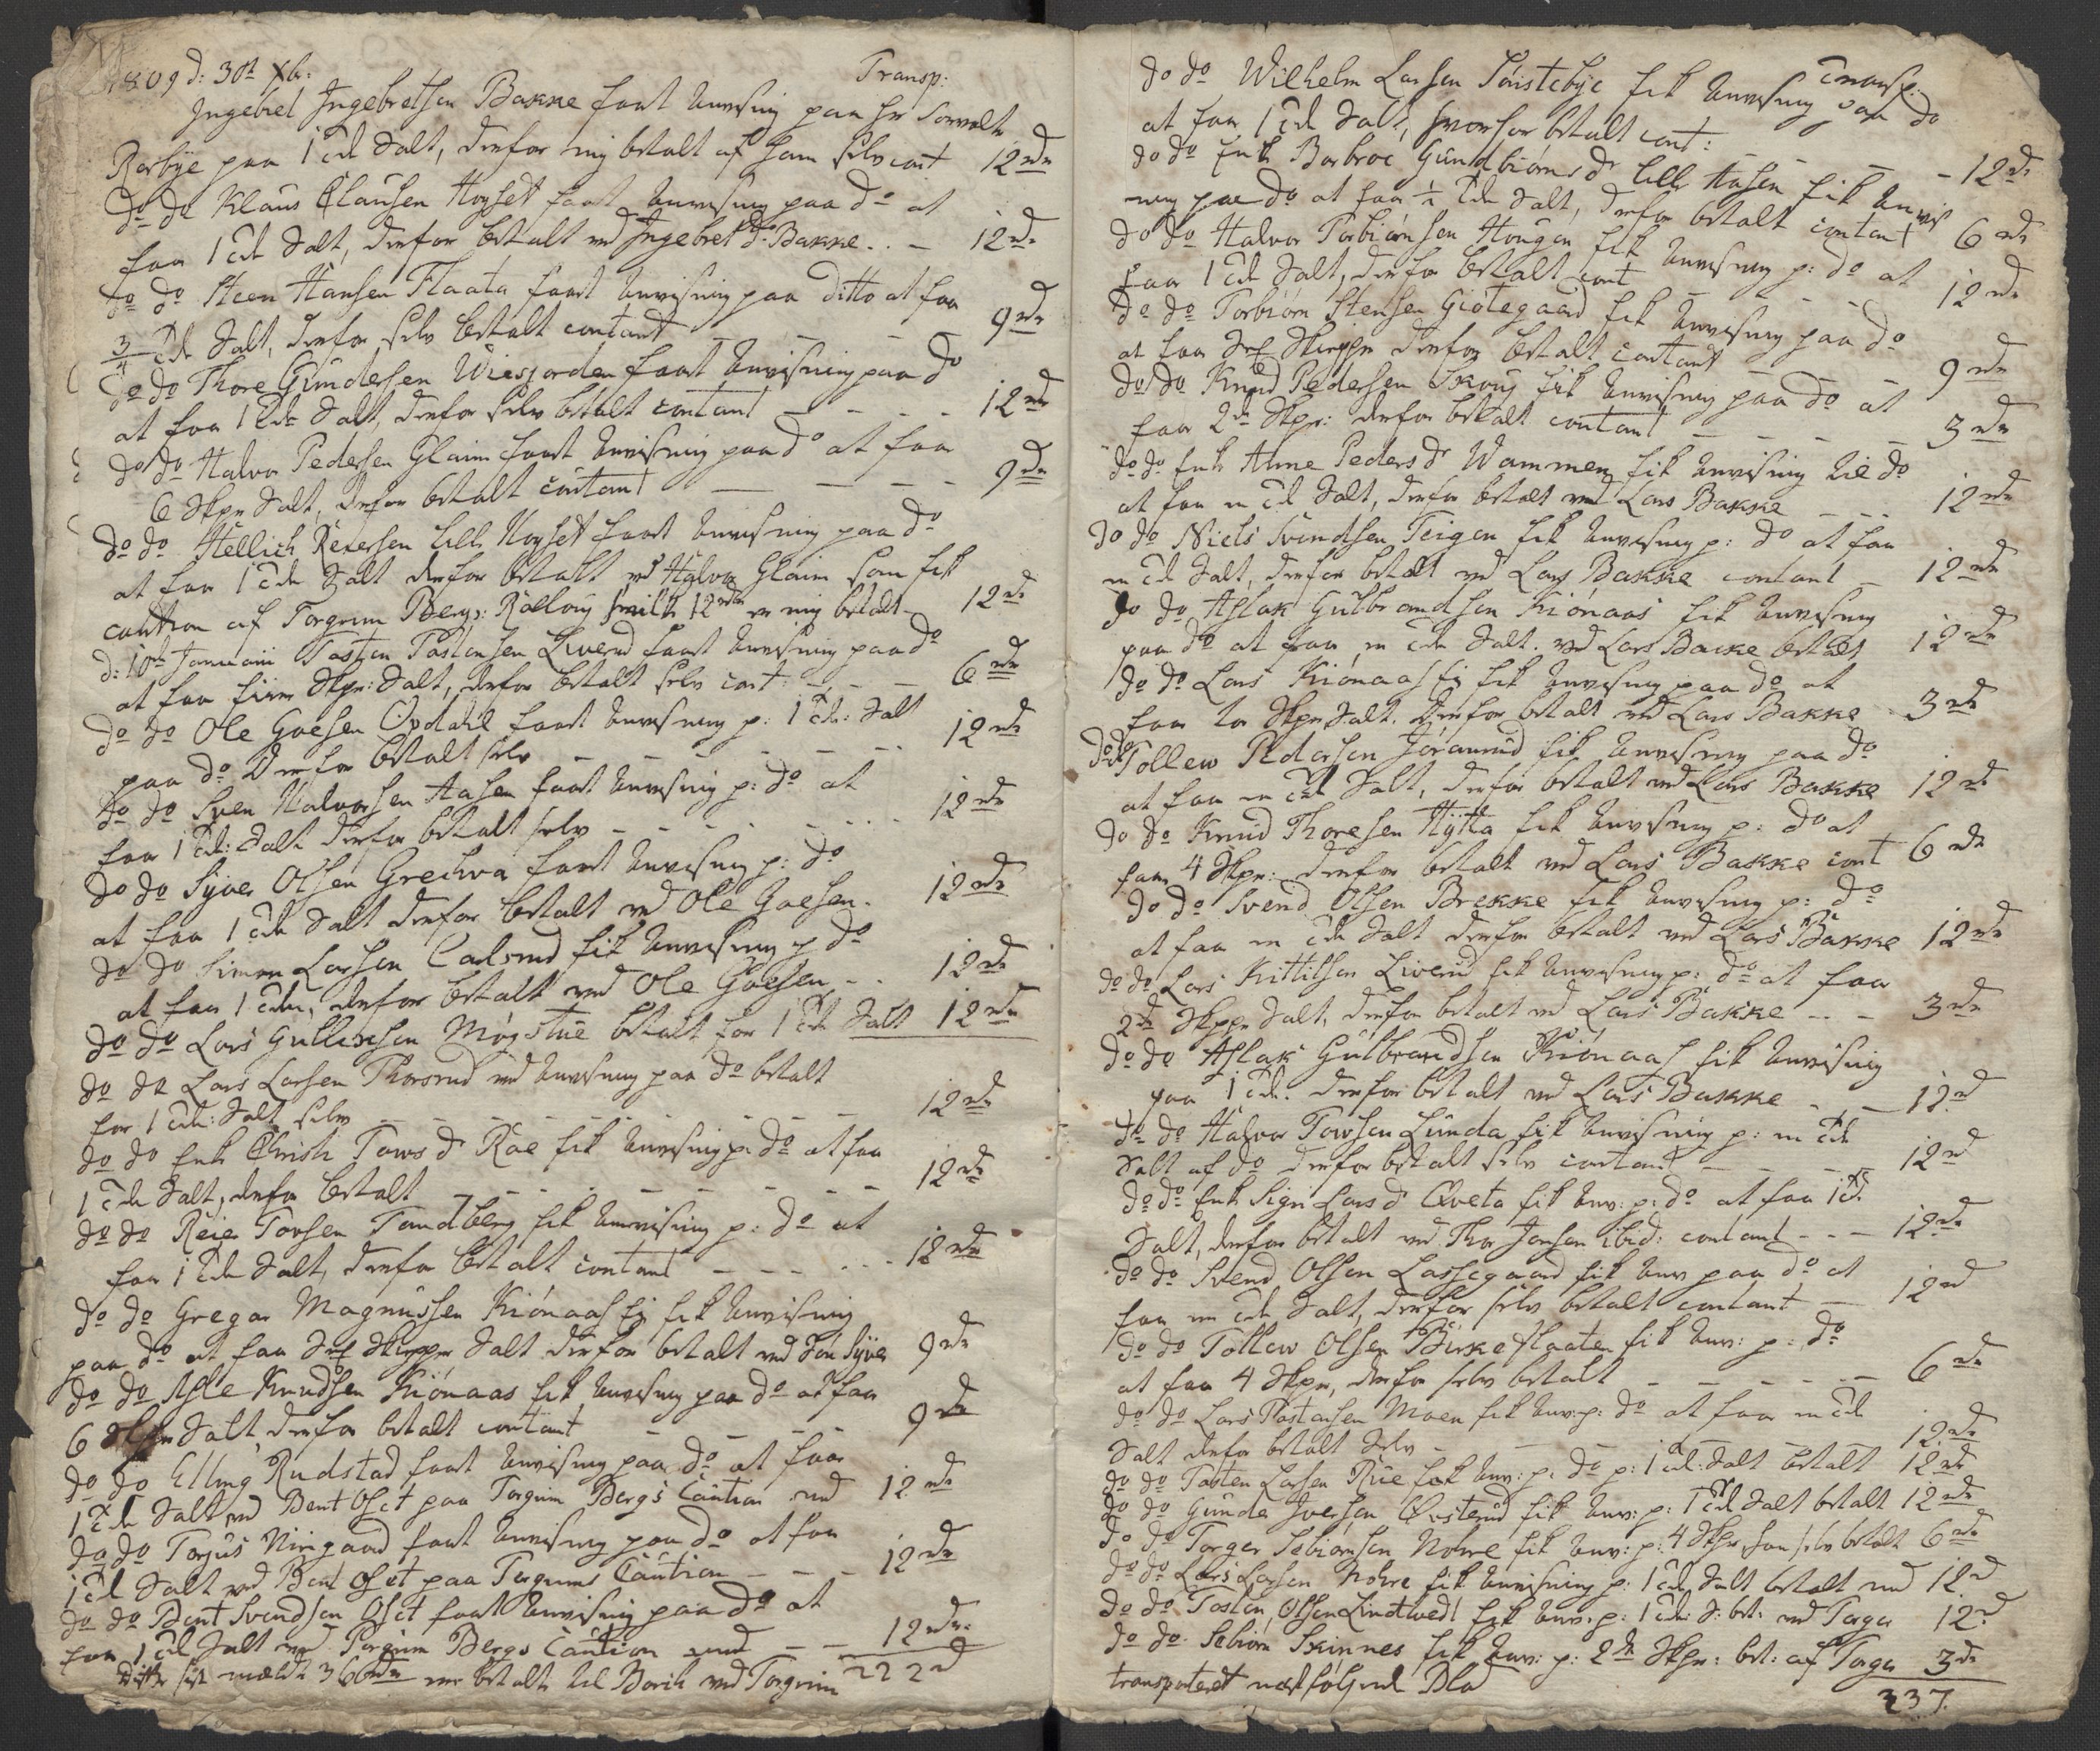 1809 d: 30t Xbr: Transp:
Ingebret Ingebretsen Bakke faaet Anvisning paa Hr Sorvelte
Rarbye paa 1 Tde Salt, derfor mig betalt af ham selv cont 12 rdr
do do Klaus Clausen Hoyset faaet Anvisning paa do at
faa 1 Tde Salt, derfor betalt ved Ingebret d. Bakke .. - 12 rdr
do do Steen Hansen Flaata faaet Anvisning paa ditto at faa
3/4 Tde Salt, derfor selv betalt contant - - - 9 rdr
do do Thore Gundersen Wiesjorden faaet Anvisning paa do
at faa 1 Tde Salt, derfor selv betalt contant - - - - 12 rdr
do do Halvor Pedersen Glaim faaet Anvisning paa do at faa
6 Skpr Salt, derfor betalt contant - - - - 9 rdr
do do Hellich Reiersen Lille Hoyset faaet Anvisning paa do
at faa 1 Tde Salt derfor betalt ved Halvor Glaim som fik
caution af Torgrim Bergs: Rolloug hvilke 12 rdr er mig betalt - 12 rd
d: 10de Januarii Tosten Tostensen Liverud faaet Anvisning paa do
at faa fiire Skpr: Salt, derfor betalt selv cont: - - - 6 rdr
do do Ole Goesen Opdahl faaet Anvisning p: 1 Tde: Salt
paa do derfor betalt selv - - - - - - 12 rdr
do do Sven Halvorsen Aasen faaet Anvisning p: do at
faa 1 Tde: Salt derfor betalt selv - - - - - - 12 rdr
do do Syver Olsen Grechva faaet Anvisning p: do
at faa 1 Tde Salt derfor betalt ved Ole Goesen. 12 rdr
do do Simon Larsen Carlsrud fik Anvisning p do
at faa 1 Tde, derfor betalt ved Ole Goesen - . 12 rdr
do do Lars Gullixsen Møgstue betalt for 1 Tde Salt 12 rdr
do do Lars Larsen Thorsrud ved Anvisning paa do betalt
for 1 Tde: Salt selv - - - - - - - - 12 rdr
do do Enke Christi Towsdr Roe fik Anvisning p: do at faa
1 Tde Salt, derfor betalt - - - - - - - 12 rdr
do do Reier Torsen Tandberg fik Anvisning p: do at
faa 1 Tde Salt, derfor betalt contant - - - . . . 12 rdr
do do Gregar Magnussen Kiónaas Ej fik Anvisning
paa do at faa Sex Skiepper Salt derfor betalt ved Søn Syver 9 rdr
do do Asle Knudsen Kiónaas fik Anvisning paa do at faa
6 Skpr Salt derfor betalt contant - - - - 9 rdr
do do Elling Rudstad faaet Anvisning paa do at faa
1 Tde Salt ved Bent Oset paa Torgrim Bergs Caution med 12 rdr
do do Torjus Niregaard faaet Anvisning paa do at faa
1 Td Salt ved Bent Oset paa Torgrims Caution - - - 12 rdr
do do Bent Svendsen Oset faaet Anvisning paa do at
faa 1 Tde Salt med Torgrim Bergs Caution med - - 12 rdr.
Disse sist mældte 36 rdr er betalt til Borik ved Torgrim 222 rd
Transp:
do do Wilhelm Larsen Toistebye fik Anvisning paa do
at faa 1 Tde Salt, hvorfor betalt cont: - - - 12 rdr
do do Enke Barbroe Gundbiørnsdr Lille Aasen fik Anvis
ning paa do at faa 1/2 Tde Salt, derfor betalt contant 6 rdr
do do Halvor Torbiørnsen Hougen fik Anvisning p: do at
faa 1 Tde Salt, derfor betalt cont - - - - 12 rdr
do do Torbiørn Stensen Giótegaard fik Anvisning paa do
at faa Sex Skiepper derfor betalt contant - - - 9 rdr
do do Knud Pedersen Skoug fik Anvisning paa do at
faa 2de Skpr: derfor betalt contant - - - - 3 rdr
do do Enke Anne Pedersdr Wammen fik Anvisning til do
at faa en Td Salt, derfor betalt ved Lars Bakke - . . 12 rdr
do do Niels Svendsen Teigen fik Anvisning p: do at faa
en Td Salt, derfor betalt ved Lars Bakke contant - 12 rdr
do do Aslak Gulbrandsen Kiónaas fik Anvisning
paa do at faa en Tde Salt. ved Lars Bakke betalt 12 rdr
do do Lars Kiónaas Ej fik Anvisning paa do at
faa to Skpr Salt. Derfor betalt ved Lars Bakke - 3 rdr
do do Tollew Pedersen Joramrud fik Anvisning paa do
at faa en Tde Salt, derfor betalt ved Lars Bakke 12 rdr
do do Knud Thoresen Hytta fik Anvisning p: do at
faa 4 Skpr: derfor betalt ved Lars Bakke cont 6 rdr
do do Svend Olsen Brekke fik Anvisning p: do
at faa en Tde Salt derfor betalt ved Lars Bakke 12 rdr
do do Lars Kittilsen Liverud fik Anvisning p: do at faa
2de Skppr Salt, derfor betalt ved Lars Bakke - - - 3 rdr
do do Aslak Gulbrandsen Kiónaas fik Anvisning
paa 1 Tde. derfor betalt ved Lars Bakke - - 12 rd
do do Halvor Towsen Lunda fik Anvisning p: en Tde
Salt af do derfor betalt selv contant - - - - 12 rd
do do Enke Sigri Larsdr Qveta fik Anv: p: do at faa 1 Td.
Salt, derfor betalt ved Thor Jonsen ibid: contant - - - 12 rdr
do do Svend Olsen Lassegaard fik Anv paa do at
faa en Tde Salt, derfor selv betalt contant - 12 rd
do do Tollew Olsen Birkeflaaten fik Anv: p: do
at faa 4 Skpr, derfor selv betalt - - - - - - 6 rdr
do do Lars Tostensen Moen fik Anv: p: do at faa en Tde
Salt derfor betalt Selv - - - - 12 rdr
do do Tosten Larsen Rue fik Anv: p: do p: 1 Tde: Salt betalt 12 rdr
do do Gunder Iversen Qvisterud fik Anv: p: 1 Tde Salt betalt 12 rdr
do do Torger Sebiørnsen Nohre fik Anv: p: 4 Skpr han selv betalt 6 rdr
do do Lars Larsen Nohre fik Anvisning p: 1 Tde Salt betalt med 12 rd
do do Tosten Olsen Lindtvedt fik Anv: p: 1 Tde: S: bet: ved Torger 12 rd
do do Sebiørn Skinnes fik Anv: p: 2de Skpr: bet: af Torger 3 rdr
transporteret næstfølgende Blad 237.